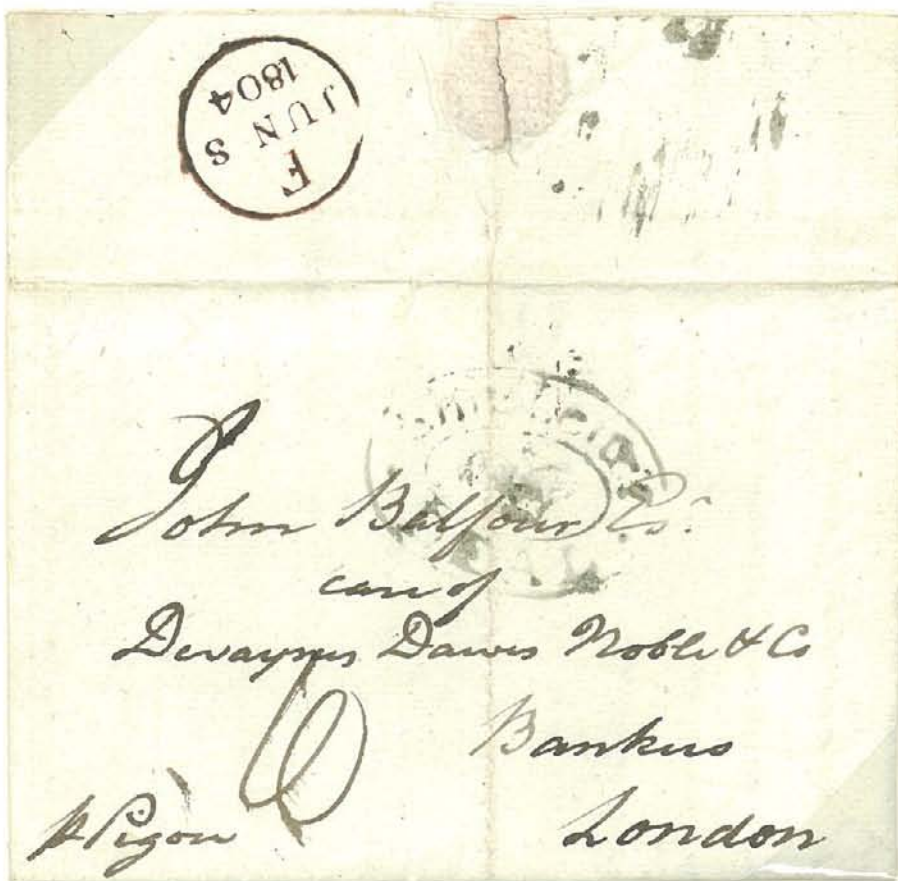 F
JUN 8
1804
John Balfour Esr.
care of
Devaynes Dawes Noble & Co
Bankers
London
6
p Pigou